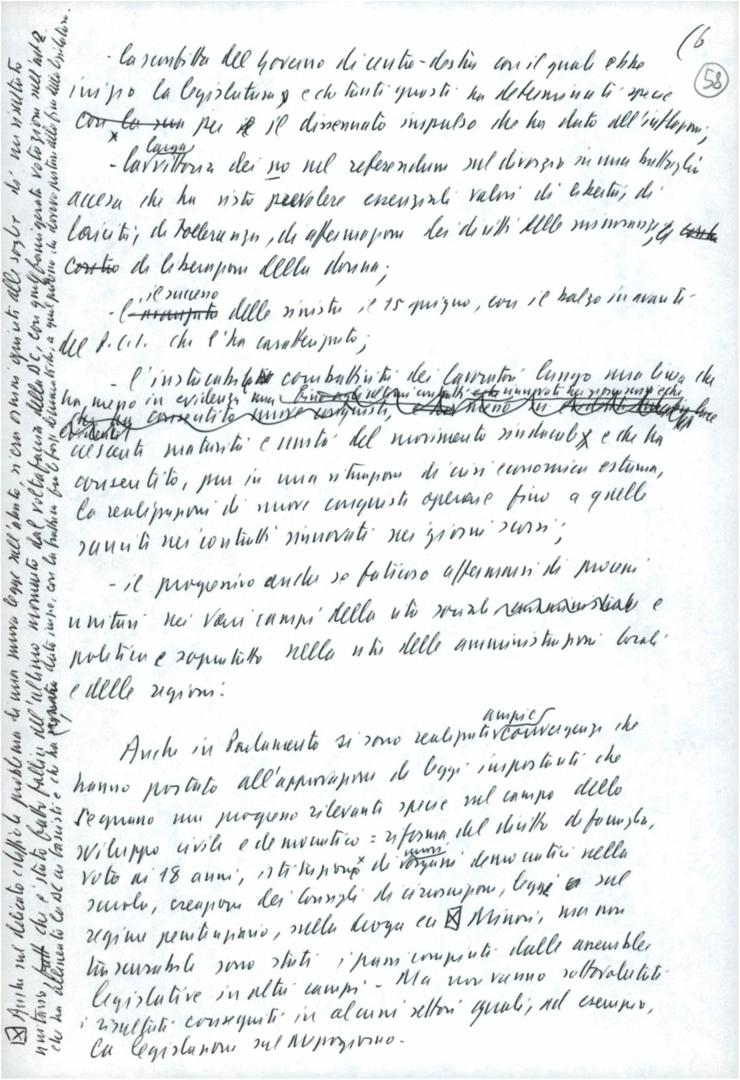 16
58
- la sconfitta del governo di centro-destra con il quale ebbe
inizio la legislatura e che tanti guasti ha determinati specie
con la sua per il dissennato impulso che ha dato all'inflazione;
larga
- la vittoria dei no nel referendum sul divorzio in una battaglia
accesa che ha visto prevalere essenziali valori di libertà, di
laicità, di tolleranza, di affermazione dei diritti delle minoranze, e
contro di liberazione della donna;
il successo
- l'avanzata delle sinistre il 15 giugno, con il balzo in avanti
del P.C.I. che l'ha caratterizzato;
- l'instancabile combattività dei lavoratori lungo una linea che
ha messo in evidenza una
che ha consentito nuove conquiste,
crescente maturità e unità del movimento sindacale e che ha
consentito, pur in una situazione di crisi economica estrema,
la realizzazione di nuove conquiste operaie fino a quelle
sancite nei contratti rinnovati nei giorni scorsi;
- il progressivo anche se faticoso affermarsi di processi
unitari nei vari campi della vita sociale e
politica e soprattutto nella vita delle amministrazioni locali
e delle regioni.
ampie
Anche in Parlamento si sono realizzate convergenze che
hanno portato all'approvazione di leggi importanti che
segnano un progresso rilevante specie sul campo dello
sviluppo civile e democratico: riforma del diritto di famiglia,
nuovi
voto ai 18 anni, istituzione di organi democratici nella
scuola, creazione dei Consigli di circoscrizione, legge sul
regime penitenziario, sulla droga ecc. Minori, ma non
trascurabili sono stati i passi compiuti dalle assemblee
legislative in altri campi - Ma non vanno sottovalutati
i risultati conseguiti in alcuni settori quali, ad esempio,
la legislazione sul Mezzogiorno.
Anche sul delicato e difficile problema di una nuova legge sull'aborto, si era ormai giunti alle soglie di un risultato
unitario che è stato fatto fallire all'ultimo momento dal voltafaccia della DC, con quel famigerato votazione sull'art. 2
che ha allineato la DC ai fascisti e che ha dato inizio, con la frattura fra le forze democratiche, a quel processo che doveva portare alla fine della legislatura.